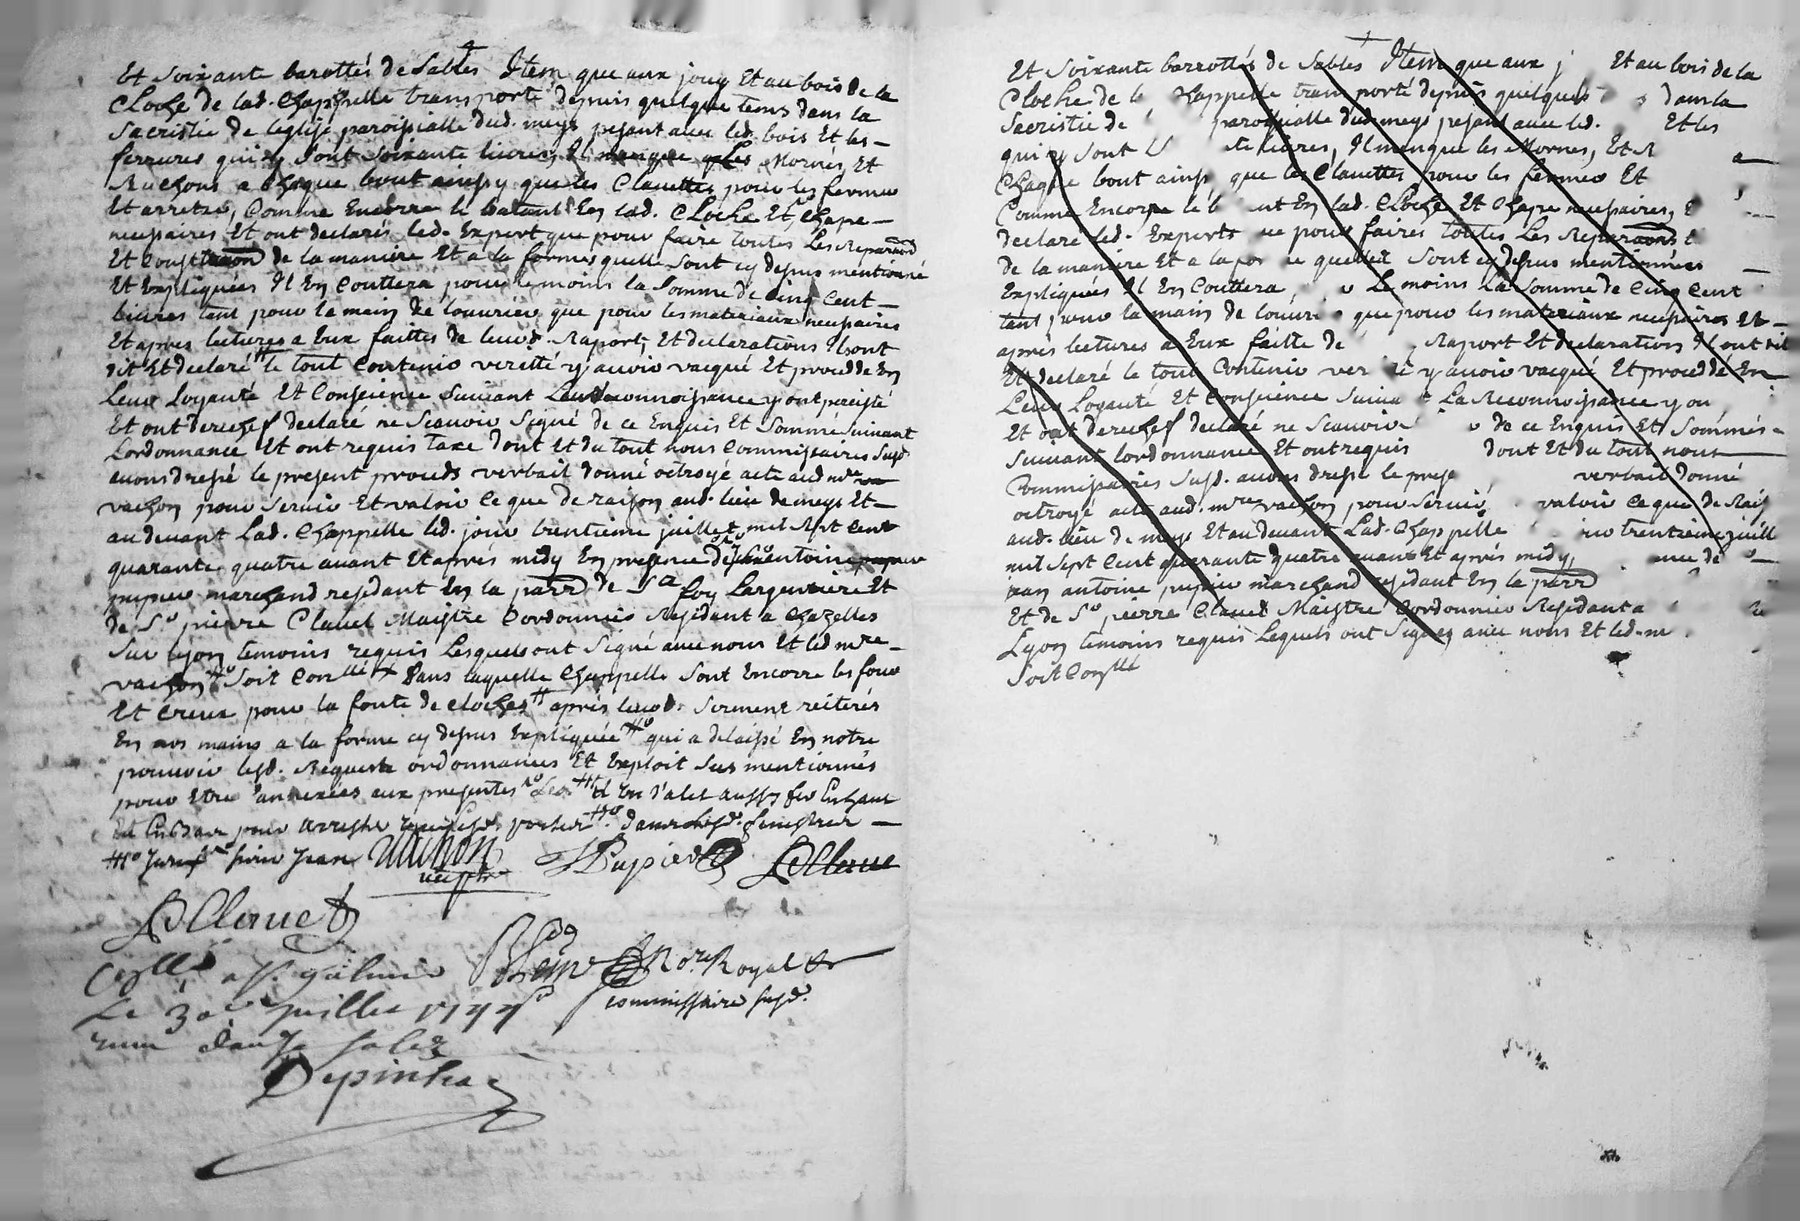 Et Soixante barottés de Sables Item que aux joug Et au bois de la
Cloche de lad. Chappelle transporté depuis quelque tems dans la
Sacristie de leglise paroissialle dud. meys pesant avec led. bois Et les
ferrures qui y Sont Soixante livres, Il manque les Mornes, Et
a Chaque bout ainsy que les Clavettes pour les fermer
Et arreter, Comme Encorre le batant En lad. Cloche Et Chape
necessaires Et ont declarés led. Expert que pour faire toutes Les Reparaons
Et Construaon de la maniere Et a la forme quelles Sont cy dessus mentionné
Et Expliquées Il En Couttera pour le moins la Somme de Cinq Cent
livres tant pour la main de louvrier que pour les materiaux necessaires
Et apres lectures a Eux faittes de leurd. Raport, Et declarations Ils ont
dit Et declaré le tout Contenir verité y avoir vacqué Et proceddé En
Leur Loyauté Et Conscience Suivant Leur Reconnoissance y ont percisté
Et ont derechef declaré ne Scavoir Signé de ce Enquis Et Sommé Suivant
Lordonnance Et ont requis taxe dont Et du tout nous Commissaires Susd.
avons dressé le present proceds verbail donné octroyé acte aud. mre
vachon pour Servir Et valoir Ce que de raison aud. lieu de meys Et
au devant Lad. Chappelle led. jour trentieme juillet mil Sept Cent
quarante quatre avant Et aprés midy En presence de jean antoine
pupier marchand residant En la parr de Ste foy Largentiere Et
de Sr pierre Clauet Maistre Cordonnier Residant a Chazelles
Sur Lyon temoins requis Lesquels ont Signé avec nous Et led. mre
vachon Soit Conllé + dans laquelle Chappelle Sont Encorre les four
Et Creux pour la fonte de cloches # aprés leurd. Serment reiterés
En nos mains a la forme cy dessus Expliquée # qui a delaissé En notre
pouvoir lesd. Requeste ordonnances Et Exploit Sus mentionnés
pour Etre annexées aux presentes
pour
vachon
Pupier
Clauet
Clauet
Nore Royal
commissaire susd.
Le 30e juillet 1744
Depinhac
Et Soixante barrottés de Sables Item que aux j Et au bois de la
Cloche de Chappelle transporté depuis quelques dans la
Sacristie de paroissialle dud. meys pesant avec led. Et les
qui y Sont livres, Il manque les Mornes, Et
Chaque bout ainsy que les Clavettes pour les fermer Et
Comme Encorre le En lad. Cloche Et Chape necessaires,
declaré led. Experts que pour faires toutes Les Reparaons
de la maniere Et a la quelles Sont cy dessus mentionnées
Expliquées Il En Couttera Le moins La Somme de Cinq Cent
tant pour la main de louvrier que pour les materiaux necessaires Et
aprés lectures a Eux faitte de Raport Et declarations Il ont dit
Et declaré le tout Contenir verité y avoir vacqué Et proceddé En
Leur Loyauté Et Conscience Suivant La Reconnoissance y on
Et ont derechef declaré ne Scavoir de ce Enquis Et Sommés
Suivant lordonnance Et ont requis dont Et du tout nous
Commissaires Susd. avons dressé le prese verbail donné
octroyé acte aud. mre vachon pour Servir valoir Ce que de Rais
aud. lieu de meys Et au devant Lad. Chappelle trentieme juill
mil Sept Cent quarante quatre avant Et aprés midy de
jean antoine pupier marchand residant En la parr
Et de Sr pierre Clauet Maistre Cordonnier Residant a
Lyon temoins requis Lesquels ont Signés avec nous Et led. m
Soit Conllé